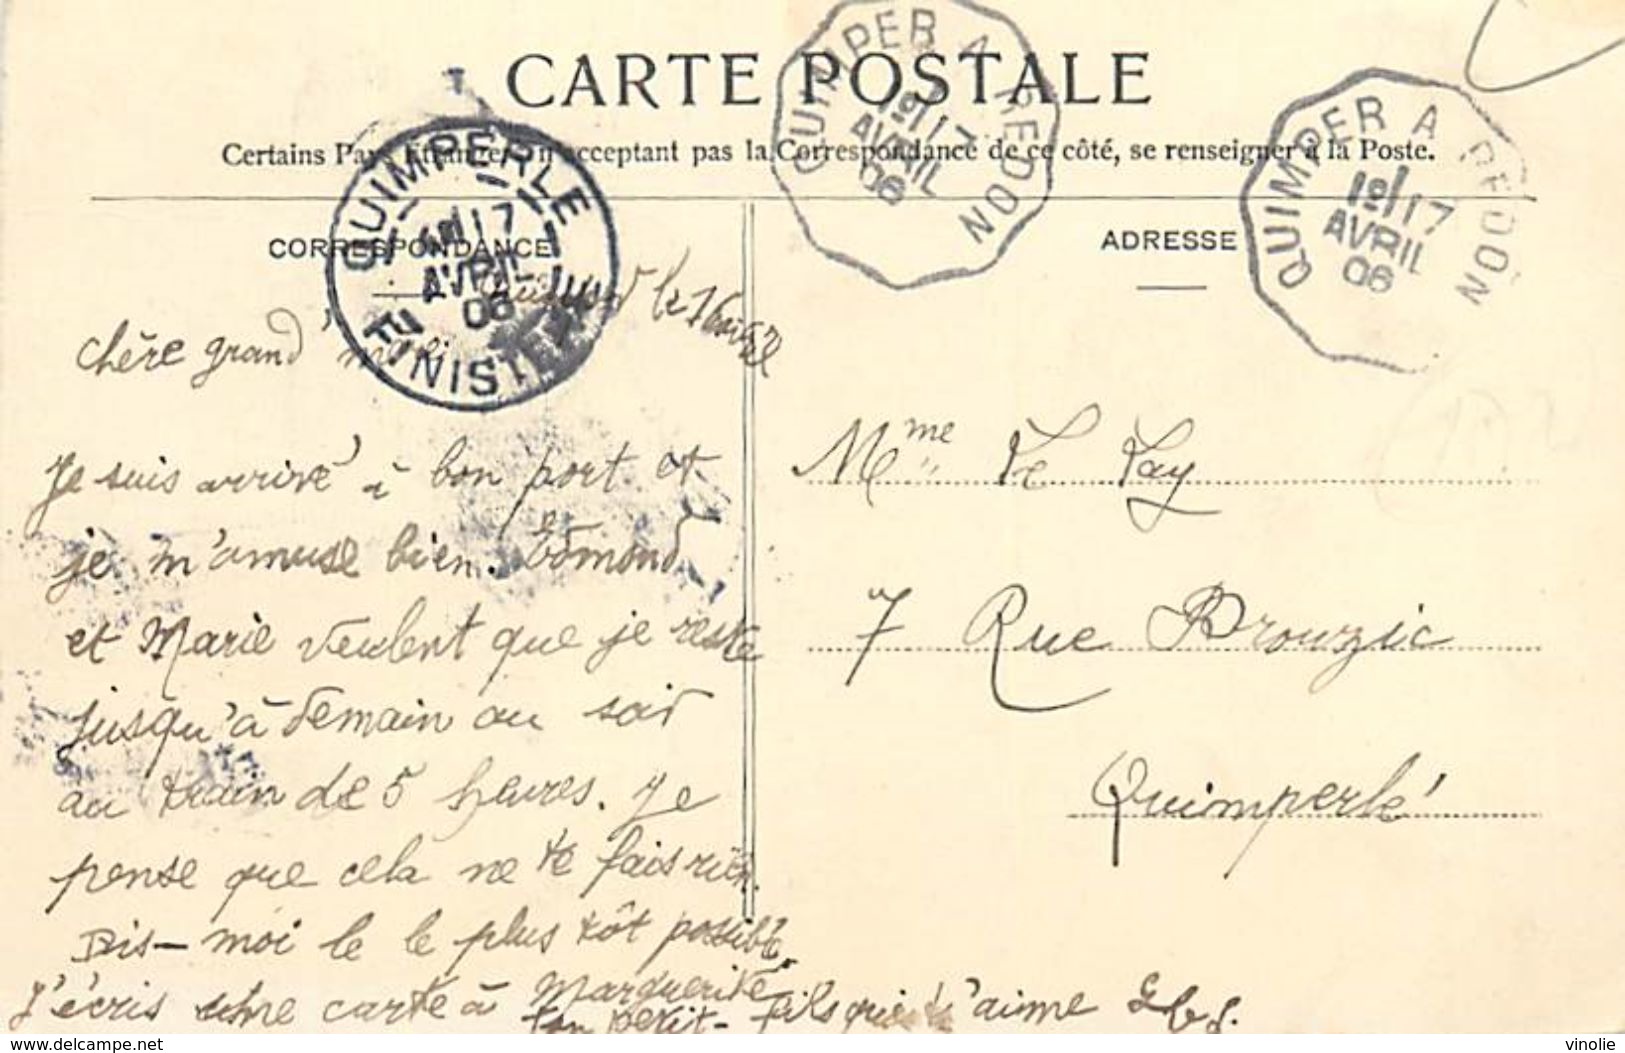 CARTE POSTALE
Certains Pays Etrangers n'acceptant pas la Correspondance de ce côté, se renseigner à la Poste.
QUIMPERLE
17
AVRIL
06
FINISTERE
QUIMPER A REDON
1º/17
AVRIL
06
QUIMPER A REDON
1º/17
AVRIL
06
CORRESPONDANCE
ADRESSE
le 16 avril
chère grand'
Je suis arrivé à bon port et
je m'amuse bien. Edmond
et Marie veulent que je reste
jusqu'à demain au soir
au train de 5 heures. Je
pense que cela ne te fais rien.
Dis-moi le le plus tôt possible.
J'écris une carte à Marguerite
ton petit-fils qui t'aime
Mme Le Lay
7 Rue Brouzic
Quimperlé
https://www.delcampe.net
vinolie